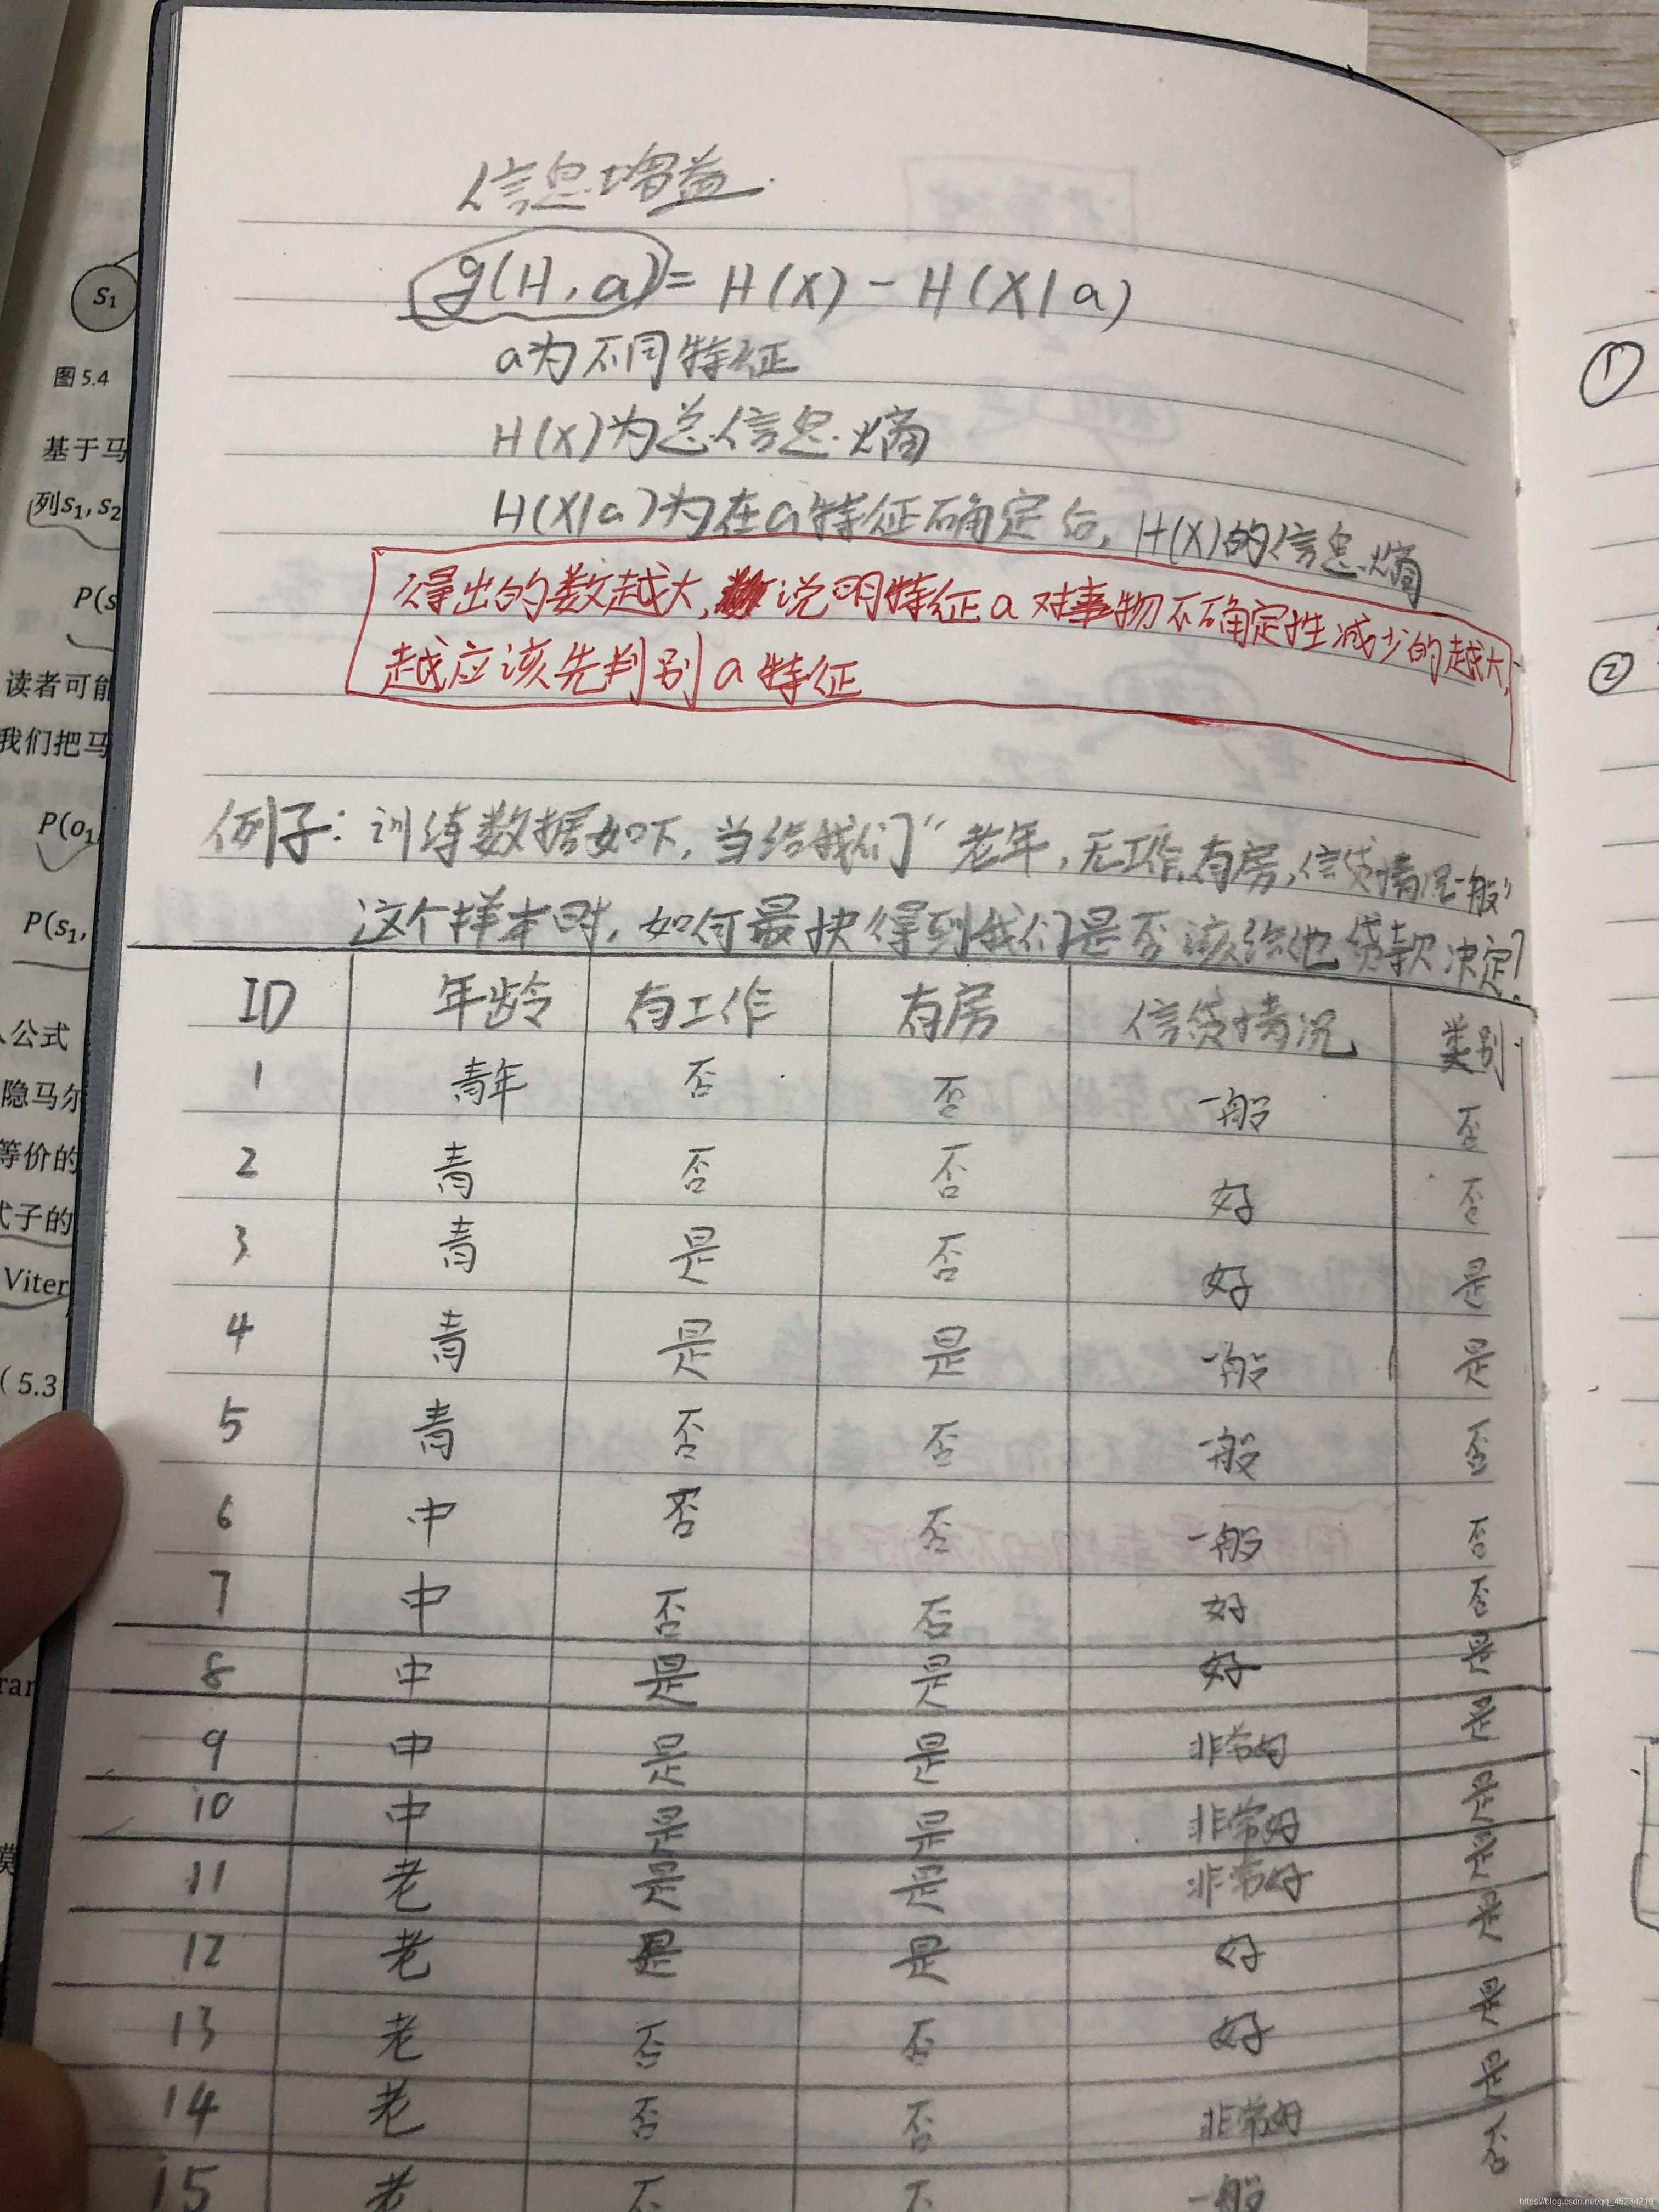 信息增益
g(H,a)= H(X)-H(X|a)
a为不同特征
H(X)为总信息熵
H(X|a)为在a特征确定后,H(X)的信息熵
得出的数越大, 说明特征a对事物不确定性减少的越大,
越应该先判别a特征
例子:训练数据如下,当给我们“老年,无工作,有房,信贷情况一般”
这个样本时,如何最快得到我们是否该给他贷款决定?
ID 年龄 有工作 有房 信贷情况 类别
1 青年 否 否 一般 否
2 青 否 否 好 否
3 青 是 否 好 是
4 青 是 是 一般 是
5 青 否 否 一般 否
6 中 否 否 一般 否
7 中 否 否 好 否
8 中 是 是 好 是
9 中 是 是 非常好 是
10 中 是 是 非常好 是
11 老 是 是 非常好 是
12 老 是 是 好 是
13 老 否 否 好 是
14 老 否 否 非常好 是
15 老 否 否 一般 否
S1
图 5.4
基于马
列s1,s2
P(s
读者可能
我们把马
P(o1,
P(s1,
公式
隐马尔
等价的
式子的
Viter
( 5.3
ran
模
①
②
https://blog.csdn.net/qq_45234219